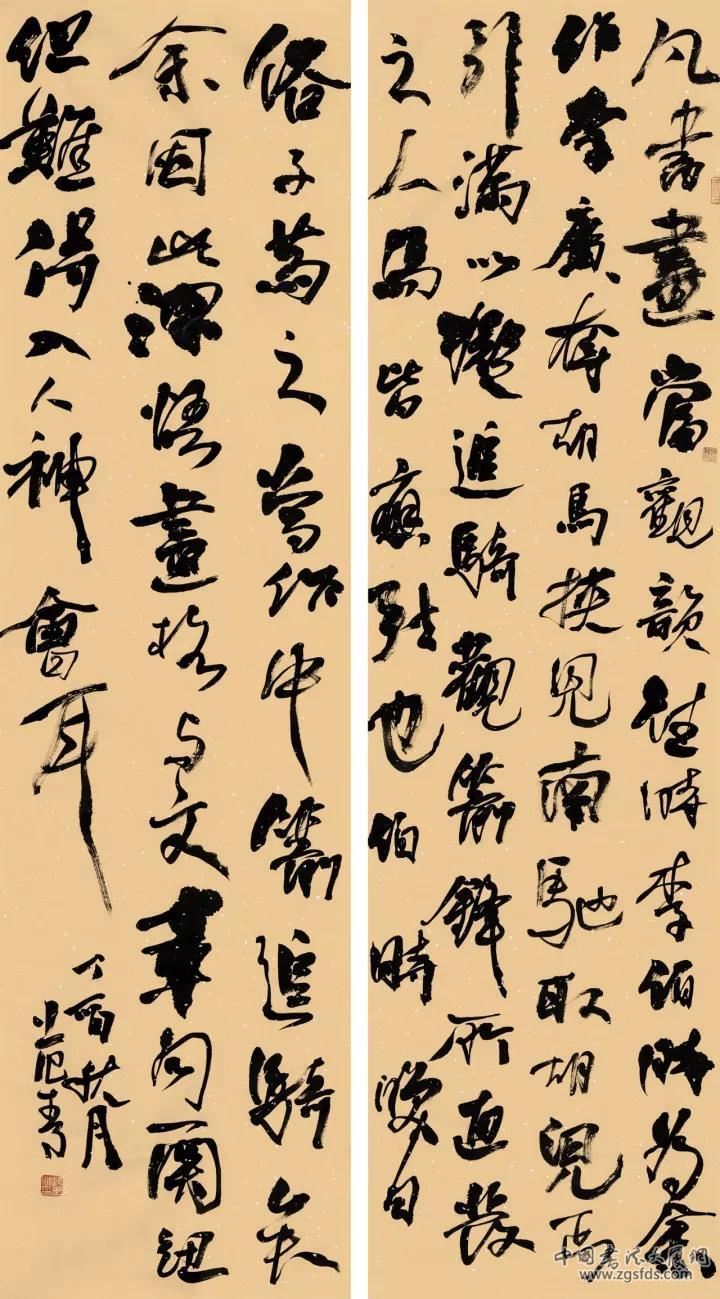 凡書畫當觀韻往時李伯時為余
作李廣奪胡馬挾兒南馳取胡兒弓
引滿以擬追騎觀箭鋒所直發
之人馬皆應弦也伯時笑曰
俗子為之當作中箭追騎矣
余因此深悟畫格与文章同一關紐
但難得入人神會耳
丁酉秋月
中国书法大展网
www.zgsfds.com